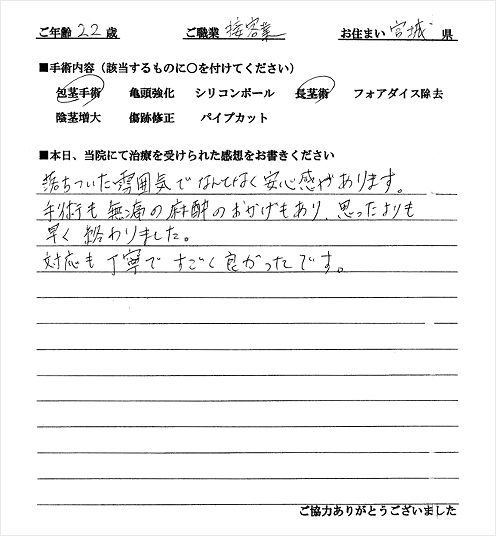 ご年齢 22 歳 ご職業 接客業 お住まい 宮城 県
■手術内容（該当するものに〇を付けてください）
包茎手術 亀頭強化 シリコンボール 長茎術 フォアダイス除去
陰茎増大 傷跡修正 パイプカット
■本日、当院にて治療を受けられた感想をお書きください
落ちついた雰囲気でなんとなく安心感があります。
手術も無痛の麻酔のおかげもあり、思ったよりも
早く終わりました。
対応も丁寧ですごく良かったです。
ご協力ありがとうございました